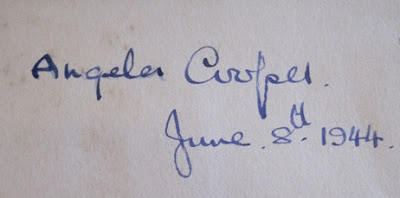 Angela Cooper.
June. 8th. 1944.